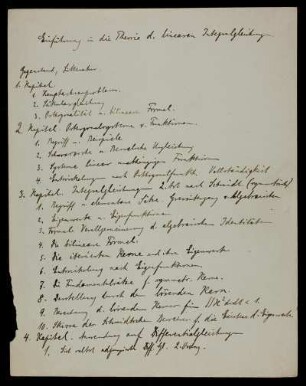 Einführung in die Theorie d. linearen Integralgleichung
Gegenstand, Literatur
1. Kapitel.
1. Hauptachsenproblem.
2. Säkulargleichung
3. Orthogonalität u. bilineare Formel.
2. Kapitel Orthogonalsysteme v. Funktionen.
1. Begriff u. Beispiele
2. Schwarzsche u. Besselsche Ungleichung
3. Systeme linear unabhängiger Funktionen
4. Entwicklungen nach Orthogonalfunkt. Vollständigkeit
3. Kapitel. Integralgleichungen 2. Art nach Schmidt
1. Begriff u. elementare Sätze. Grenzübergang v. Algebraischen
2. Eigenwerte u. Eigenfunktionen
3. Formale Verallgemeinerung d. algebraischen Identitäten
4. Die bilineare Formel.
5. Die iterierten Kerne und ihre Eigenwerte
6. Entwicklung nach Eigenfunktionen.
7. Die Fundamentalsätze f. symmetr. Kerne.
8. Darstellung durch den lösenden Kern.
9. d. lösenden Kernes für
10. der Schmidtschen f. die d. Eigenw.
4. Kapitel. Anwendung auf Differentialgleichung
1. Die selbst adjungierte Diff. gl. 2. Ordng.